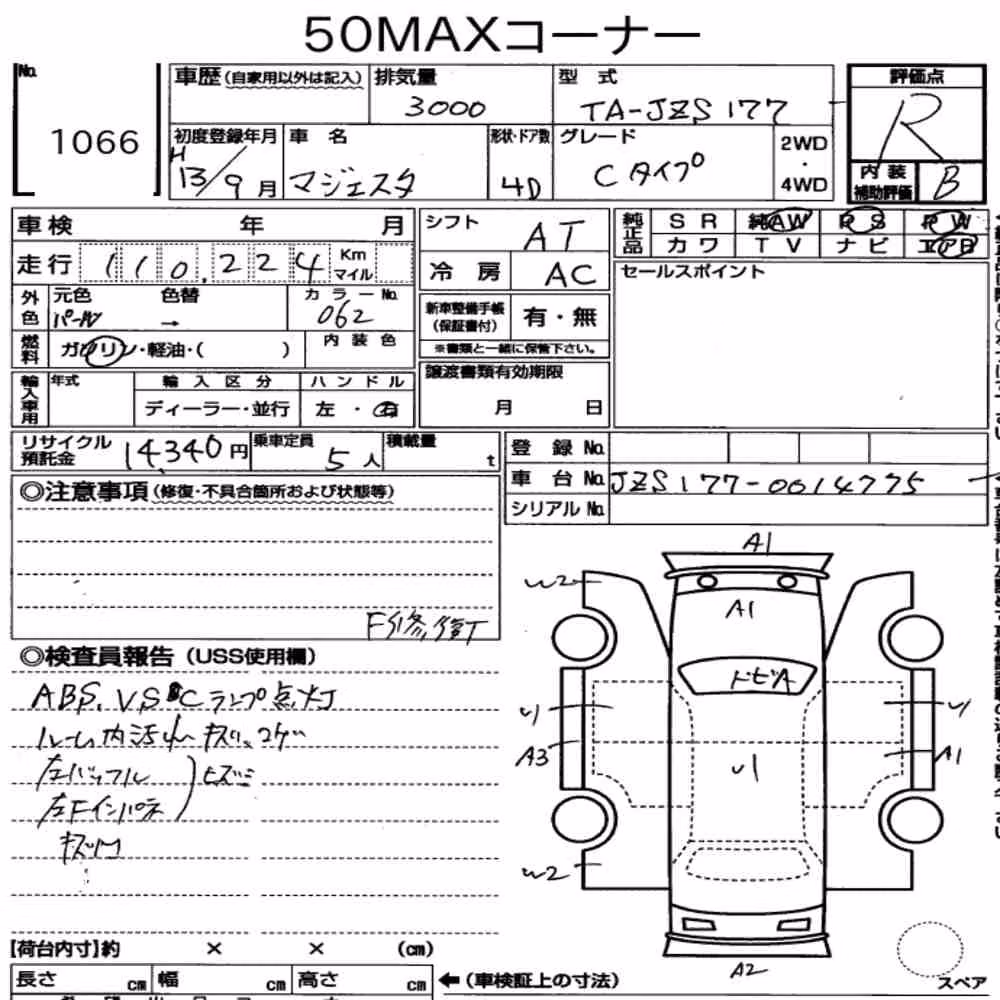 50MAXコーナー
No.
1066
車歴(自家用以外は記入)
排気量
3000
型式
TA-JZS177
評価点
R
初度登録年月
H
13/9月
車名
マジェスタ
形状・ドア数
4D
グレード
Cタイプ
2WD
・
4WD
内装
補助評価
B
車検 年 月
シフト
AT
純正品
SR 純AW PS PW
カワ TV ナビ エアB
走行
110,224
Km
マイル
冷房
AC
セールスポイント
外色
元色 色替
パール →
カラーNo.
062
新車整備手帳
(保証書付)
有・無
※書類と一緒に保管下さい。
燃料
ガソリン・軽油・( )
内装色
譲渡書類有効期限
月 日
輸入車用
年式
輸入区分
ディーラー・並行
ハンドル
左・右
リサイクル
預託金
14,340円
乗車定員
5人
積載量
t
登録No.
車台No.
JZS177-0014775
シリアルNo.
◎注意事項(修復・不具合箇所および状態等)
F修,衛T
◎検査員報告(USS使用欄)
ABS. VSC ランプ点灯
ルーム内汚れ キズ、コゲ
左バッフル
左Fインパネ
ヒズミ
A1
W2
A1
トビA
U1
U1
A3
A1
U1
W2
A2
スペア
[荷台内寸]約 × × (cm)
長さ cm 幅 cm 高さ cm
←(車検証上の寸法)